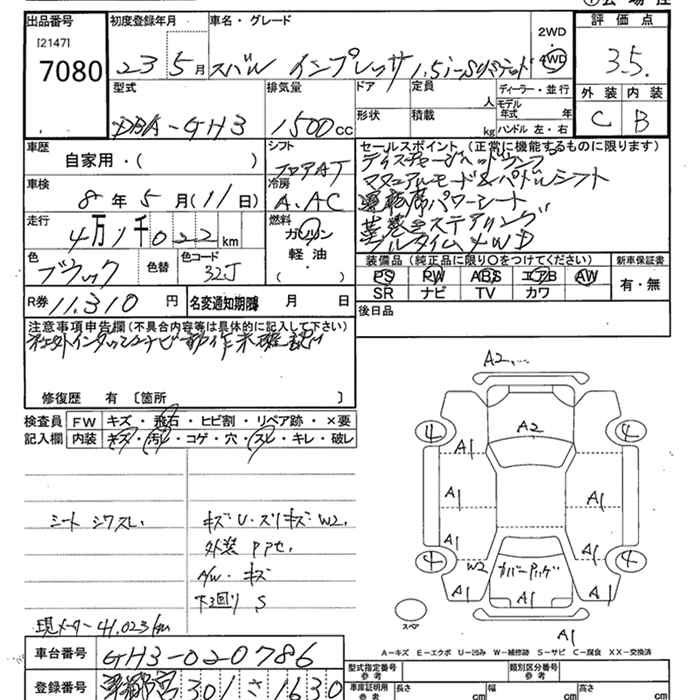 出品番号 初度登録年月 車名・グレード 評価点
[2147]
7080
23 5月 スバル インプレッサ 1.5i-Sリミテッド 2WD 4WD 3.5.
型式 排気量 ドア 定員 人 ディーラー・並行 外装 内装
DBA-GH3 1500cc 形状 積載 kg モデル年式 年 ハンドル 左・右 C B
車歴 シフト セールスポイント (正常に機能するものに限ります)
自家用・( ) フロアAT ディスチャージヘッドランプ
車検 冷房 マニュアルモード&パドルシフト
8年5月(11日) A.AC 運転席パワーシート
走行 燃料 革巻きステアリング
4万1千022km ガソリン フルタイム4WD
色 色替 色コード 軽油 装備品 (純正品に限り○をつけてください) 新車保証書
ブラック 32J ・( ) PS PW ABS エアB AW 有・無
R券 11.310円 名変通知期限 月 日 SR ナビ TV カワ
注意事項申告欄(不具合内容等は具体的に記入して下さい) 後日品
社外インダッシュナビ動作未確認
修復歴 有 〔箇所 〕
検査員 FW キズ・飛石・ヒビ割・リペア跡・×要
記入欄 内装 キズ・汚レ・コゲ・穴・スレ・キレ・破レ
A2
A2
4 4
A1
A1 A1
A1
4 W2 A1 4
カバーアリゲ
A1 A1 A1
スペア
A1
シート シワスレ キズU・スリキズW2.
外装 PPセ.
A/W・キズ
下回り S
現メーター 41,023km
A-キズ E-エクボ U-凹み W-補修跡 S-サビ C-腐食 XX-交換済
車台番号 GH3-020786 型式指定番号 類別区分番号
登録番号 宇都宮 301 さ 1630 車庫証明用 参考 長さ cm 幅 cm 高さ cm